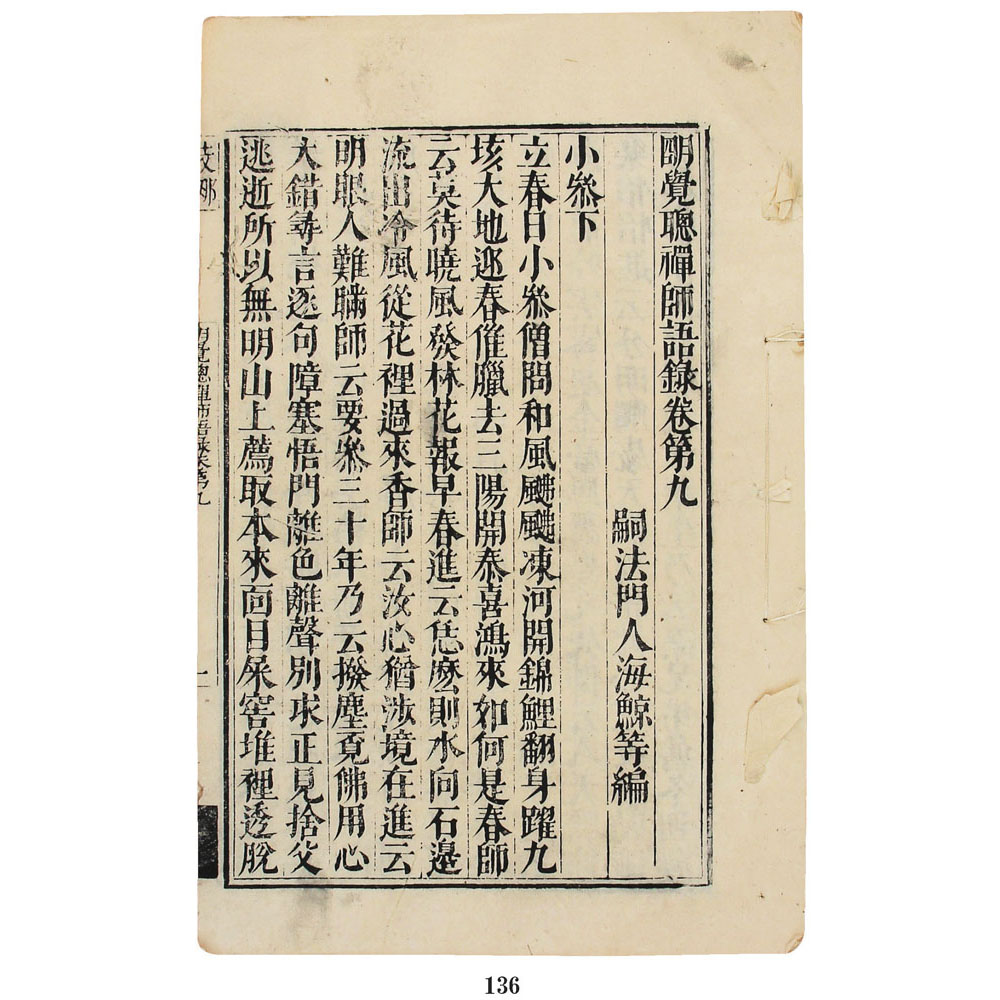 明覺聰禪師語錄卷第九
嗣法門人海鯨等編
小叅下
立春日小叅僧問和風颺颺凍河開錦鯉翻身躍九
垓大地迎春催臘去三陽開泰喜鴻來如何是春師
云莫待曉風發林花報早春進云恁麽則水向石邊
流出冷風從花裡過來香師云汝心猶涉境在進云
明眼人難瞞師云要叅三十年乃云撥塵覔佛用心
大錯尋言逐句障塞悟門離色離聲別求正見捨父
逃逝所以無明山上薦取本來面目屎窖堆裡透脫
支那
明覺聰禪師語錄卷第九
一
136